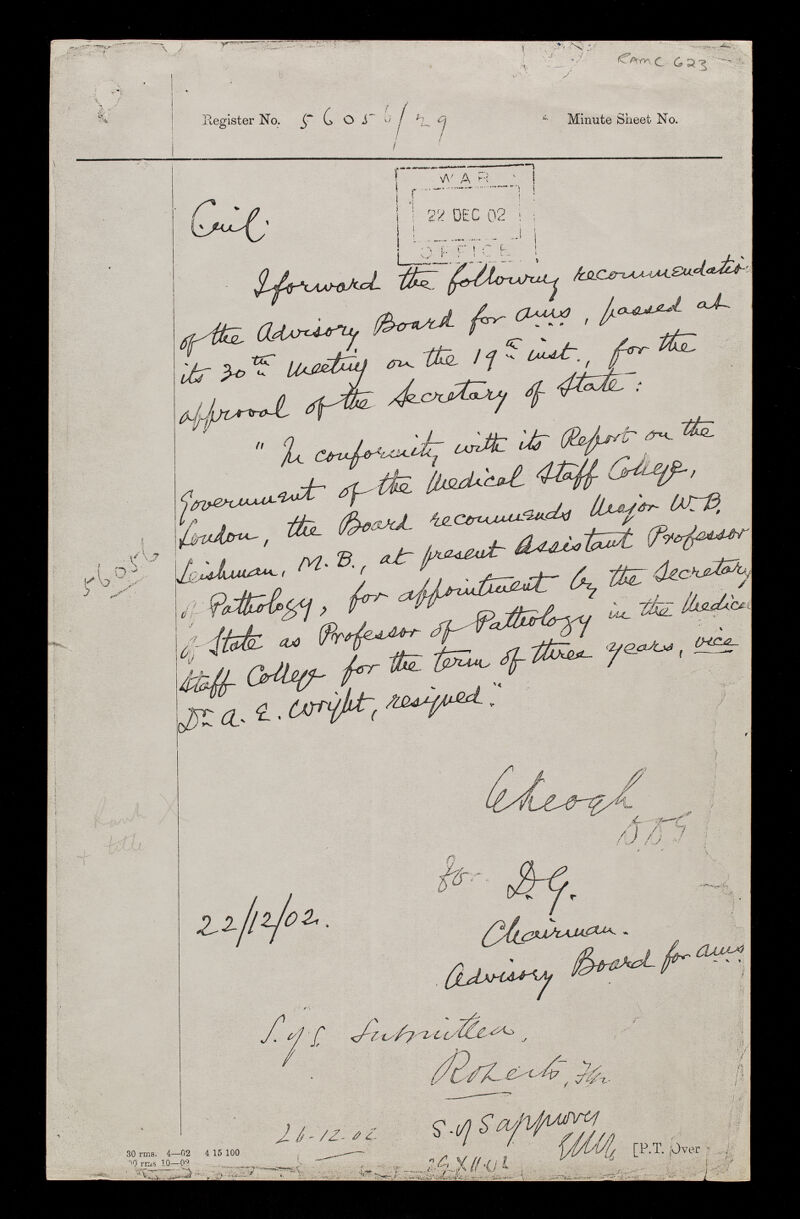 RAMC 623
Register No. 56056/29 Minute Sheet No.
WAR
22 DEC 02
OFFICE
I forward the following recommendation
of the Advisory Board for AMS, passed at
its 30th Meeting on the 19th inst., for the
approval of the Secretary of State:
"In conformity with its Report on the
Government of the Medical Staff College,
London, the Board recommends Major W. B.
56056
Leishman, M. B., at present Assistant Professor
of Pathology, for appointment by the Secretary
of State as Professor of Pathology in the Medical
Staff College for the term of three years, vice
Dr A. E. Wright, resigned."
AKeogh
D.D.G
Rank X
+ title
for D.G.
22/12/02.
Chairman.
Advisory Board for AMS
S. of S. Submitted,
Roberts, FM
26-12-02
S. of S approves
[P.T. Over
30 rms. 4—02 4 15 100
30 rms 10—02
29 XII 02